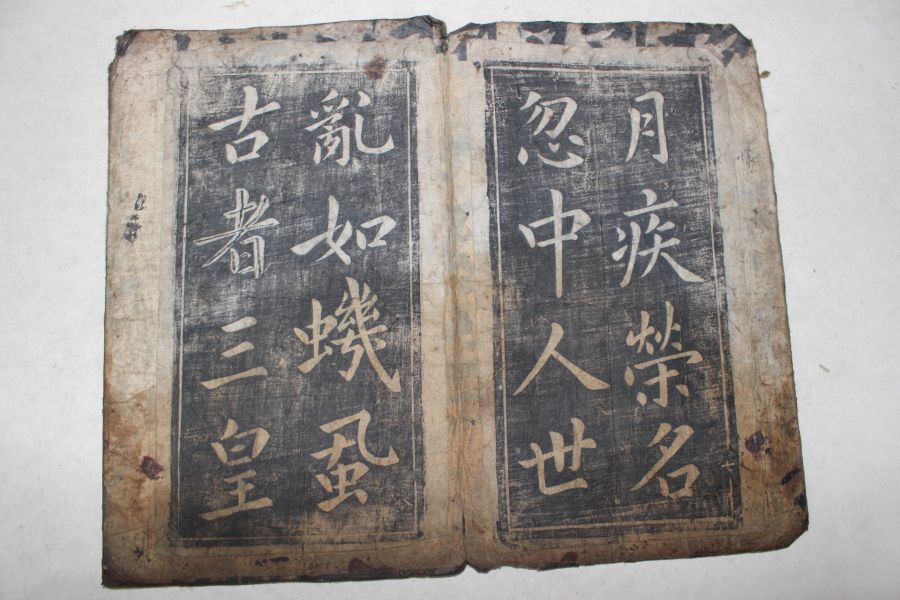 月疾榮名
忽中人世
亂如蟣虱
古者三皇